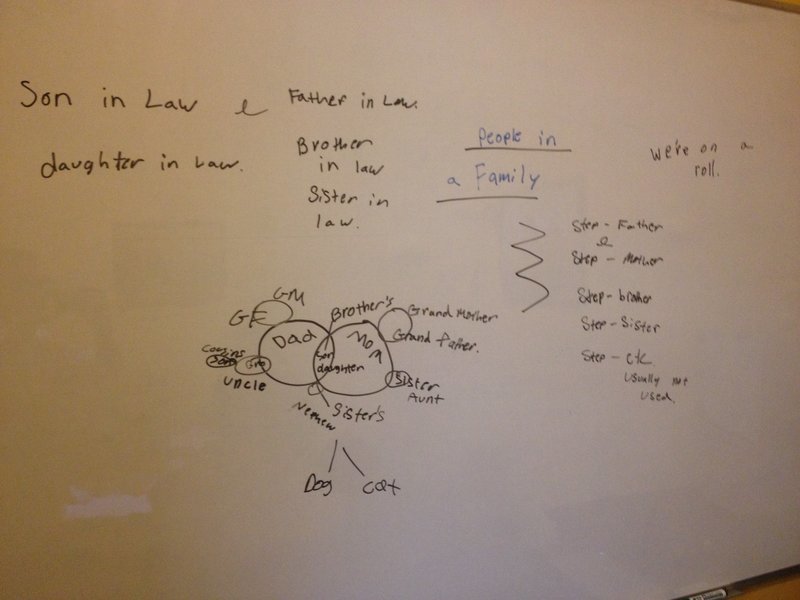 Son in Law e Father in Law.
daughter in Law.
Brother
in law
Sister in
law.
People in
a Family
We're on a
roll.
Step - Father
e
Step - Mother
Step - brother
Step - Sister
Step - etc
usually not
used.
GM
GF
Dad
Brother's
Mom
Grand Mother
Grand father.
Son
daughter
Cousins
Bro
Uncle
Sister
Aunt
Nephew
Sister's
Dog
Cat